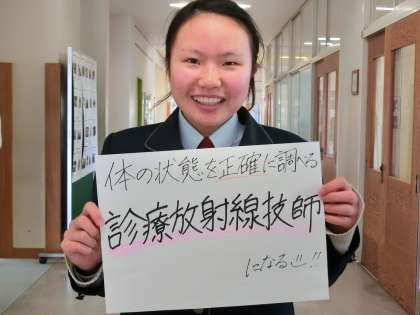 体の状態を正確に調べる
診療放射線技師
になる!!